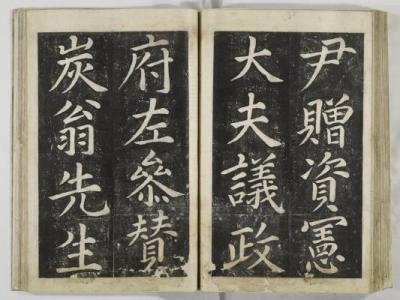 尹贈資憲
大夫議政
府左叅贊
炭翁先生